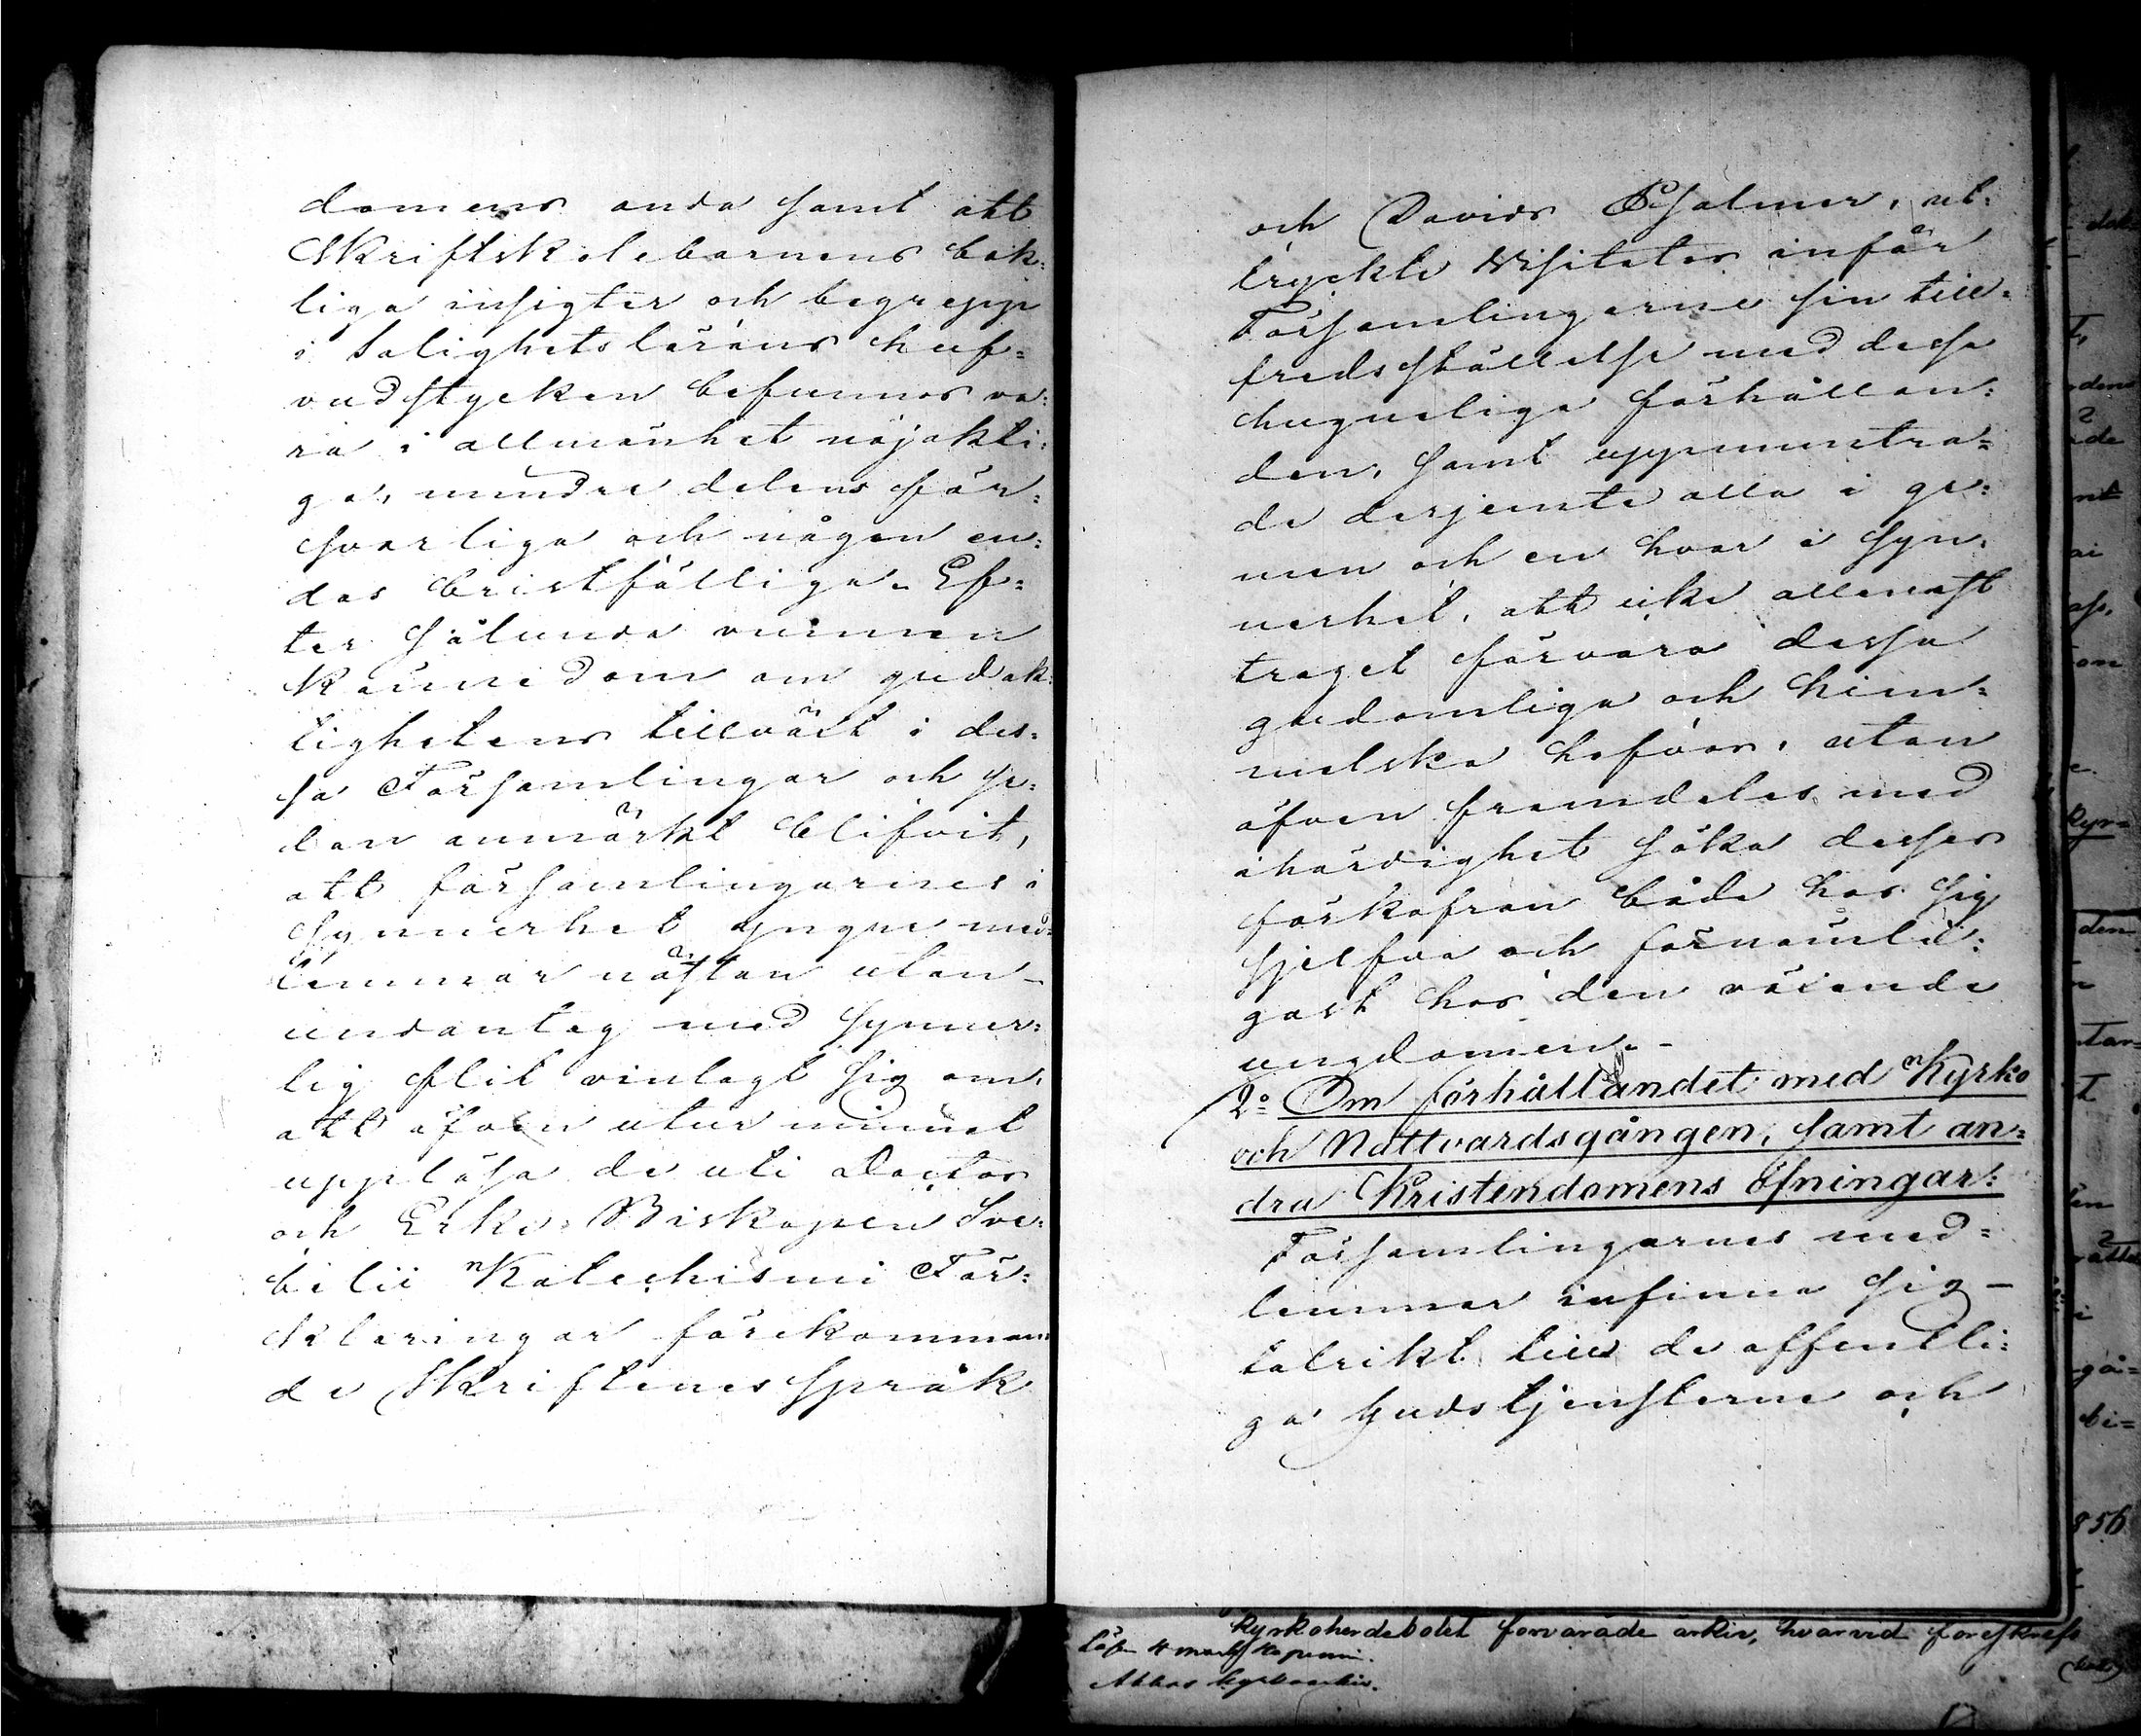 domens anda samt att
Skriftskolebarnens bok-
liga insigter och begrepp
i Salighetslärans huf-
vudstycken befunnos va-
ra i allmänhet nöjakti-
ga, mindre delens för-
svarliga och någon en-
das bristfälliga. Ef-
ter sålunda vunnen
kännedom om gudak-
tighetens tillväxt i des-
sa Församlingar och se-
dan anmärkt blifvit,
att församlingarnes i
synnerhet yngre med-
lemmar nästan utan
undantag med synner-
lig flit vinlagt sig om,
att äfven utur minnet
uppläsa de uti Doctor
och Erke-Biskopen Sve-
bilii Katechismi För-
klaringar förekomman-
de Skriftenes språk
och Davids Psalmer, ut-
tryckte Visitator inför
Församlingarne sin till-
fredsställelse med dessa
hugneliga förhållan-
den, samt uppmuntra-
de derjemte alla i ge-
men och en hvar i syn-
nerhet, att icke allenast
traget förvara dessa
gudomliga och him-
melska håfvor, utan
äfven framdeles med
ihärdighet söka dessas
förkofran både hos sig
sjelfva och förnämli-
gast hos den växende
ungdomen.
2:o Om förhållandet med Kyrko
och Nattvardsgången, samt an-
dra Kristendomens öfningar:
Församlingarnes med-
lemmar infinna sig
talrikt till de offentli-
ga Gudstjensterne och
Kyrkoherdebolet förvarade arkiv, hvarvid föreskrefs